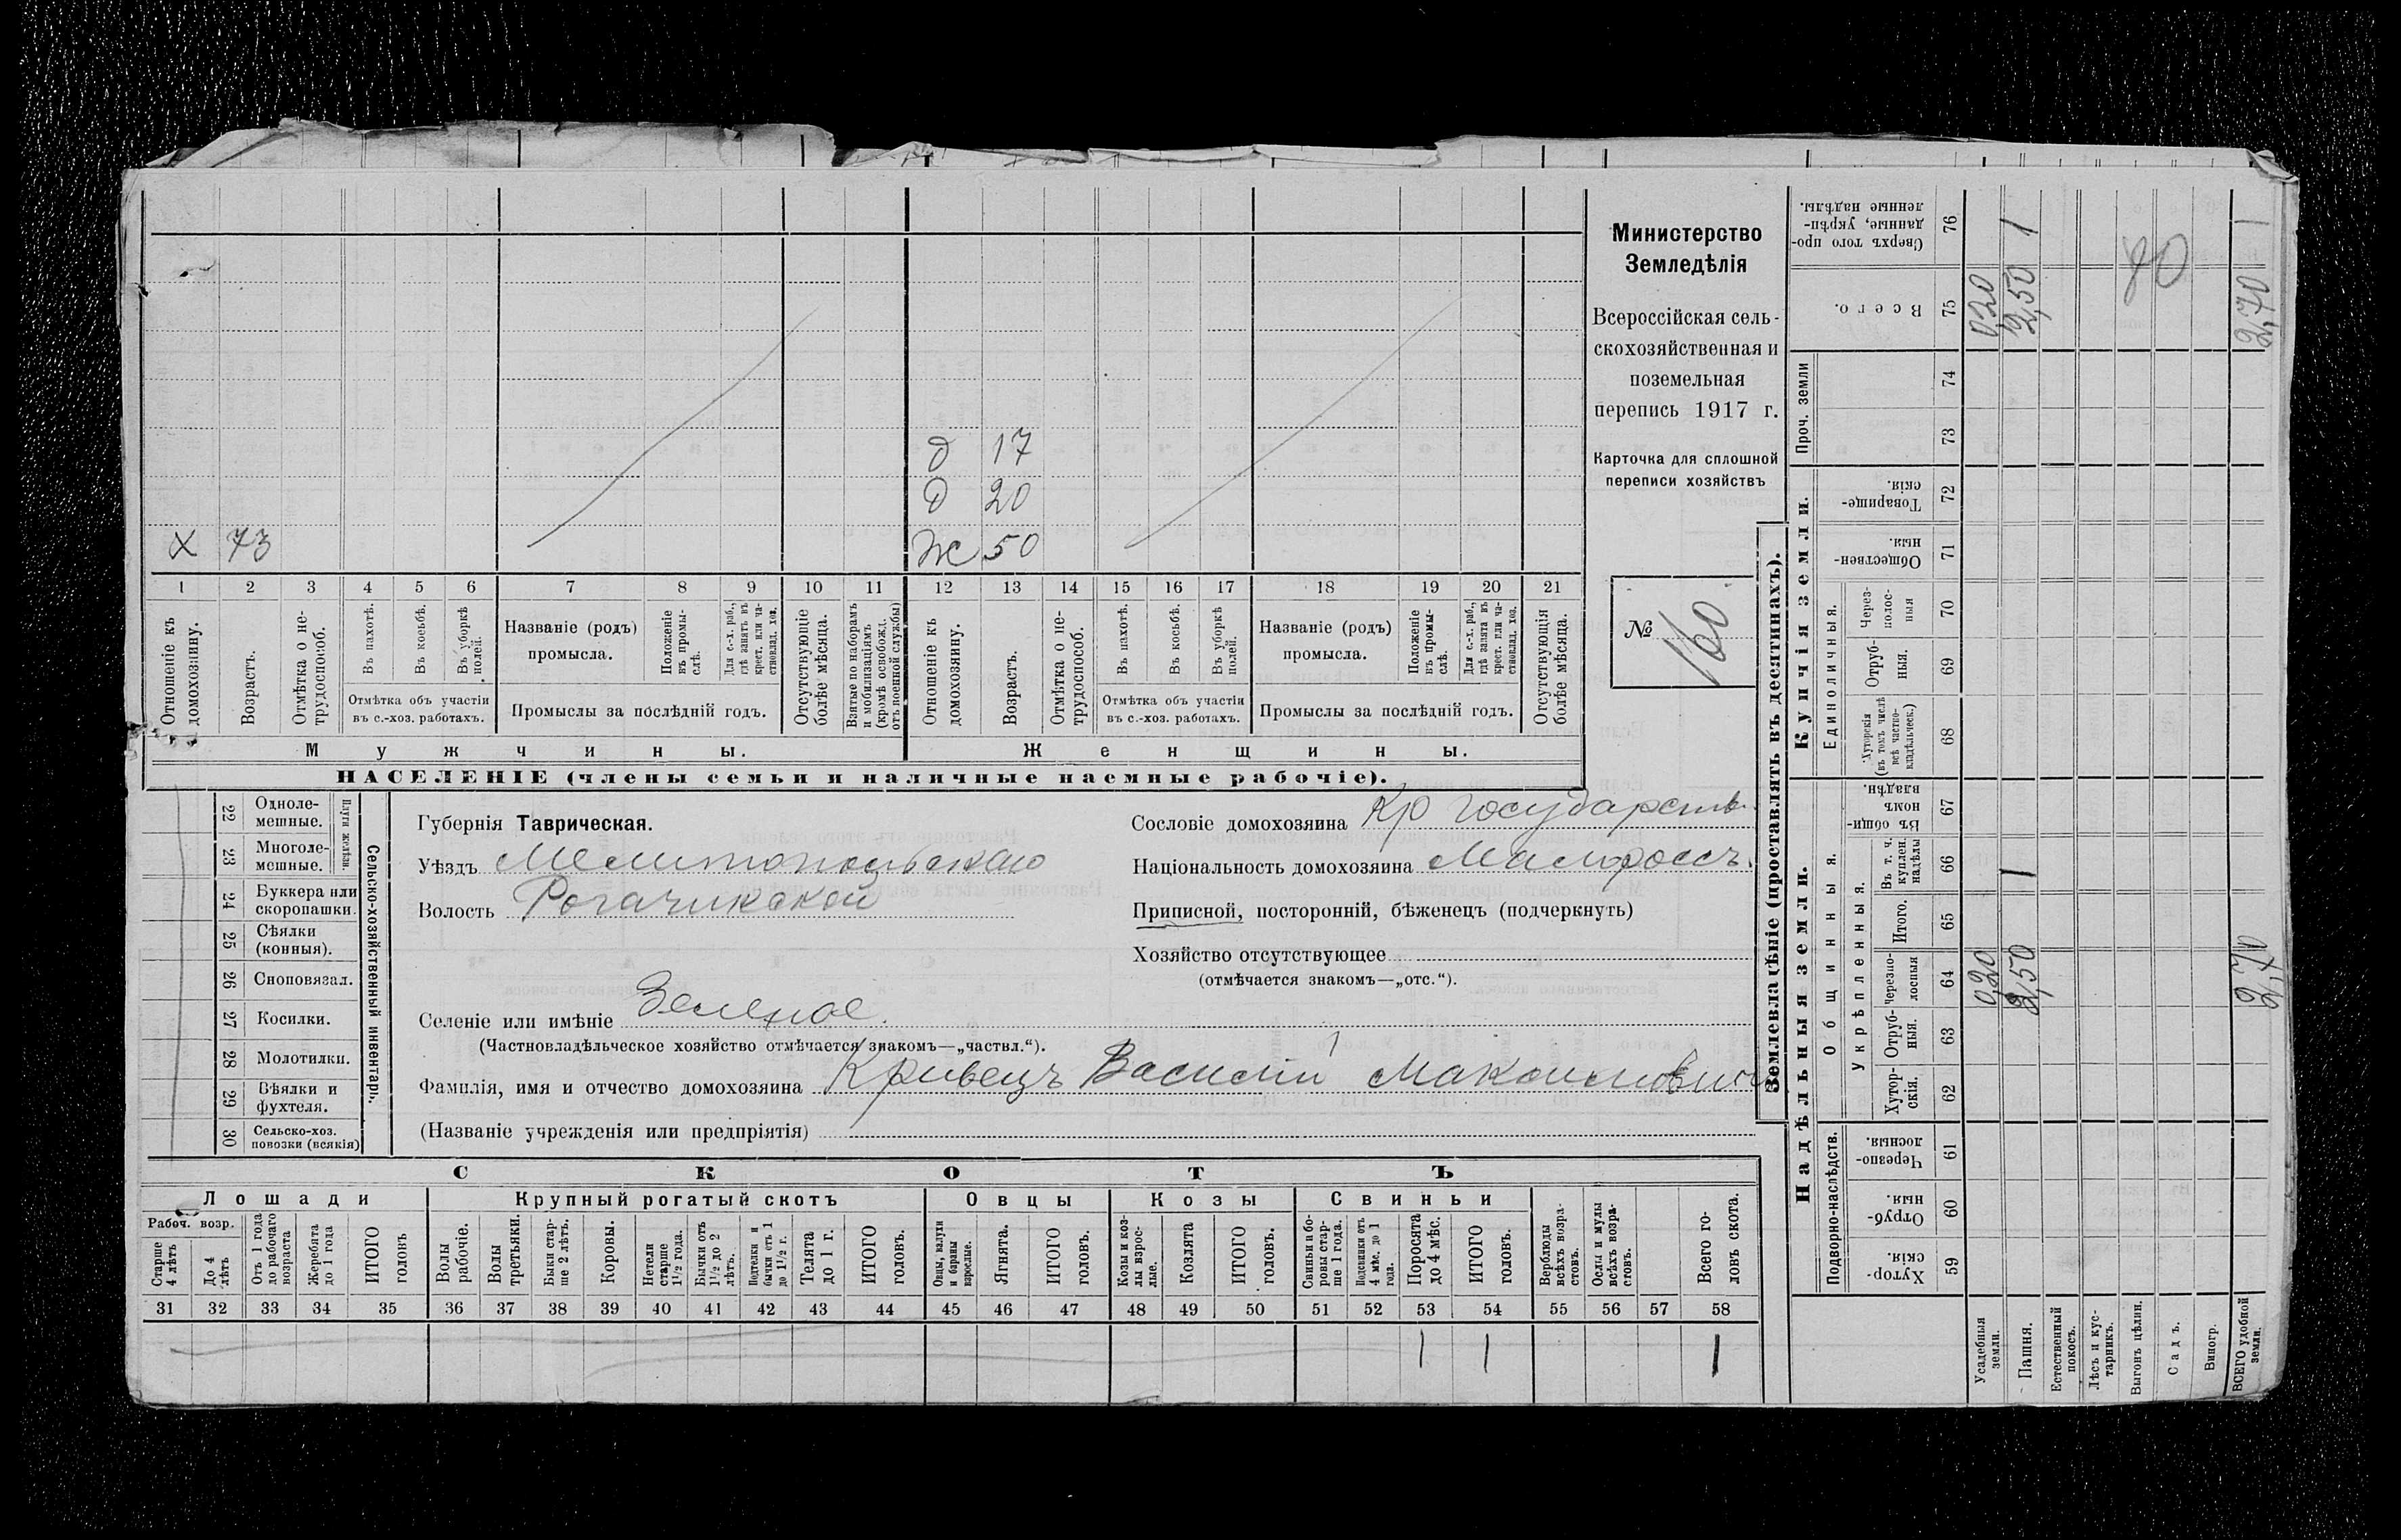 д 17
д 20
х 73 ж 50
1 2 3 4 5 6 7 8 9 10 11 12 13 14 15 16 17 18 19 20 21
Отношеніе къ домохозяину.
Возрастъ.
Отмѣтка о не-трудоспособ.
Въ пахотѣ.
Въ косьбѣ.
Въ уборкѣ полей.
Отмѣтка объ участіи
въ с.-хоз. работахъ.
Названіе (родъ)
промысла.
Положеніе въ промы-слѣ.
Для с.-х. раб., гдѣ занятъ въ крест. или ча-стновлад. хоз.
Промыслы за послѣдній годъ.
Отсутствующіе болѣе мѣсяца.
Взятые по наборамъ и мобилизаціямъ (кромѣ освобожд. отъ военной службы)
Отношеніе къ домохозяину.
Возрастъ.
Отмѣтка о не-трудоспособ.
Въ пахотѣ.
Въ косьбѣ.
Въ уборкѣ полей.
Отмѣтка объ участіи
въ с.-хоз. работахъ.
Названіе (родъ)
промысла.
Положеніе въ промы-слѣ.
Для с.-х. раб., гдѣ занята въ крест. или ча-стновлад. хоз.
Промыслы за послѣдній годъ.
Отсутствующія болѣе мѣсяца.
Мужчины. Женщины.
НАСЕЛЕНІЕ (члены семьи и наличные наемные рабочіе).
Министерство
Земледѣлія
Всероссійская сель-
скохозяйственная и
поземельная
перепись 1917 г.
Карточка для сплошной
переписи хозяйствъ
№ 160
22 Одноле-
мешные.
23 Многоле-
мешные.
Плуги желѣзн.
24 Буккера или
скоропашки.
25 Сѣялки
(конныя).
26 Сноповязал.
27 Косилки.
28 Молотилки.
29 Вѣялки и
фухтеля.
30 Сельско-хоз.
повозки (всякія)
Сельско-хозяйственный инвентарь.
Губернія Таврическая.
Уѣздъ Мелитопольскаго
Волость Рогачикской
Селеніе или имѣніе Зеленое.
(Частновладѣльческое хозяйство отмѣчается знакомъ—„частвл.“).
Фамилія, имя и отчество домохозяина Кривецъ Василій Максимович
(Названіе учрежденія или предпріятія)
Сословіе домохозяина Кр государств.
Національность домохозяина Малороссъ.
Приписной, посторонній, бѣженецъ (подчеркнуть)
Хозяйство отсутствующее
(отмѣчается знакомъ—„отс.“).
СКОТЪ
Лошади Крупный рогатый скотъ Овцы Козы Свиньи
Рабоч. возр.
Старше 4 лѣтъ
До 4 лѣтъ
Отъ 1 года до рабочаго возраста
Жеребята до 1 года
ИТОГО головъ
Волы рабочіе.
Волы третьяки.
Быки стар-ше 2 лѣтъ.
Коровы.
Нетели старше 1½ года.
Бычки отъ 1½ до 2 лѣтъ.
Подтелки и бычки отъ 1 до 1½ г.
Телята до 1 г.
ИТОГО головъ.
Овцы, валухи и бараны взрослые.
Ягнята.
ИТОГО головъ.
Козы и коз-лы взрос-лые.
Козлята
ИТОГО головъ.
Свиньи и бо-ровы стар-ше 1 года.
Подсвинки отъ 4 мѣс. до 1 года.
Поросята до 4 мѣс.
ИТОГО головъ.
Верблюды всѣхъ возра-стовъ.
Ослы и мулы всѣхъ возра-стовъ.
Всего го-ловъ скота.
31 32 33 34 35 36 37 38 39 40 41 42 43 44 45 46 47 48 49 50 51 52 53 54 55 56 57 58
1 1 1
Землевладѣніе (проставлять въ десятинахъ).
Надѣльныя земли. Купчія земли. Проч. земли
Подворно-наслѣдств.
Общинныя.
Укрѣпленныя.
Единоличныя.
Хутор-скія. 59
Отруб-ныя. 60
Черезпо-лосныя. 61
Хутор-скія. 62
Отруб-ныя. 63
Черезпо-лосныя 64
Итого. 65
Въ т. ч. куплен. надѣлы 66
Въ общин-номъ владѣн. 67
Хуторскія (въ томъ числѣ всѣ частно-владѣльческ.) 68
Отруб-ныя. 69
Через-полос-ныя 70
Обществен-ныя. 71
Товарище-скія. 72
73
74
Всего. 75
Сверхъ того про-данные, укрѣп-ленные надѣлы. 76
Усадебныя земли. 0,20 0,20
Пашня. 2,50 1 2,50 1
Естественный покосъ.
Лѣсъ и кус-тарникъ.
Выгонъ цѣлин.
Садъ.
Виногр.
ВСЕГО удобной земли. 2,70 2,70 1